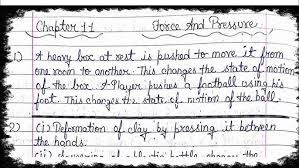 Chapter 11 Force And Pressure
1) A heavy box at rest is pushed to move it from
one room to another. This changes the state of motion
of the box. A Player pushes a football using his
foot. This changes the state of motion of the ball.
2) (i) Deformation of clay by pressing it between
the hands.